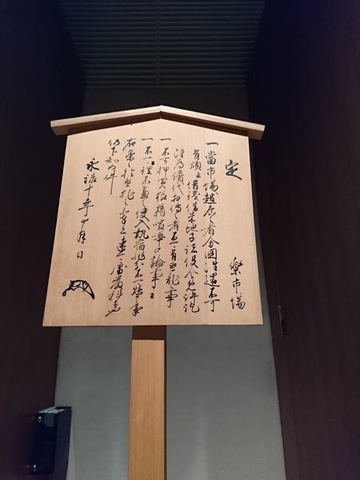 定
樂市場
一當市場越居之者分国往還不可
有煩并借銭借米地子諸役令免許訖
雖為譜代相傳之者不可有違乱之事
一不可押買狼藉喧嘩口論事
一不可理不尽之使入執宿非分
右条々於違犯之輩者速可処厳科者也
仍下知如件
永禄十年十月日